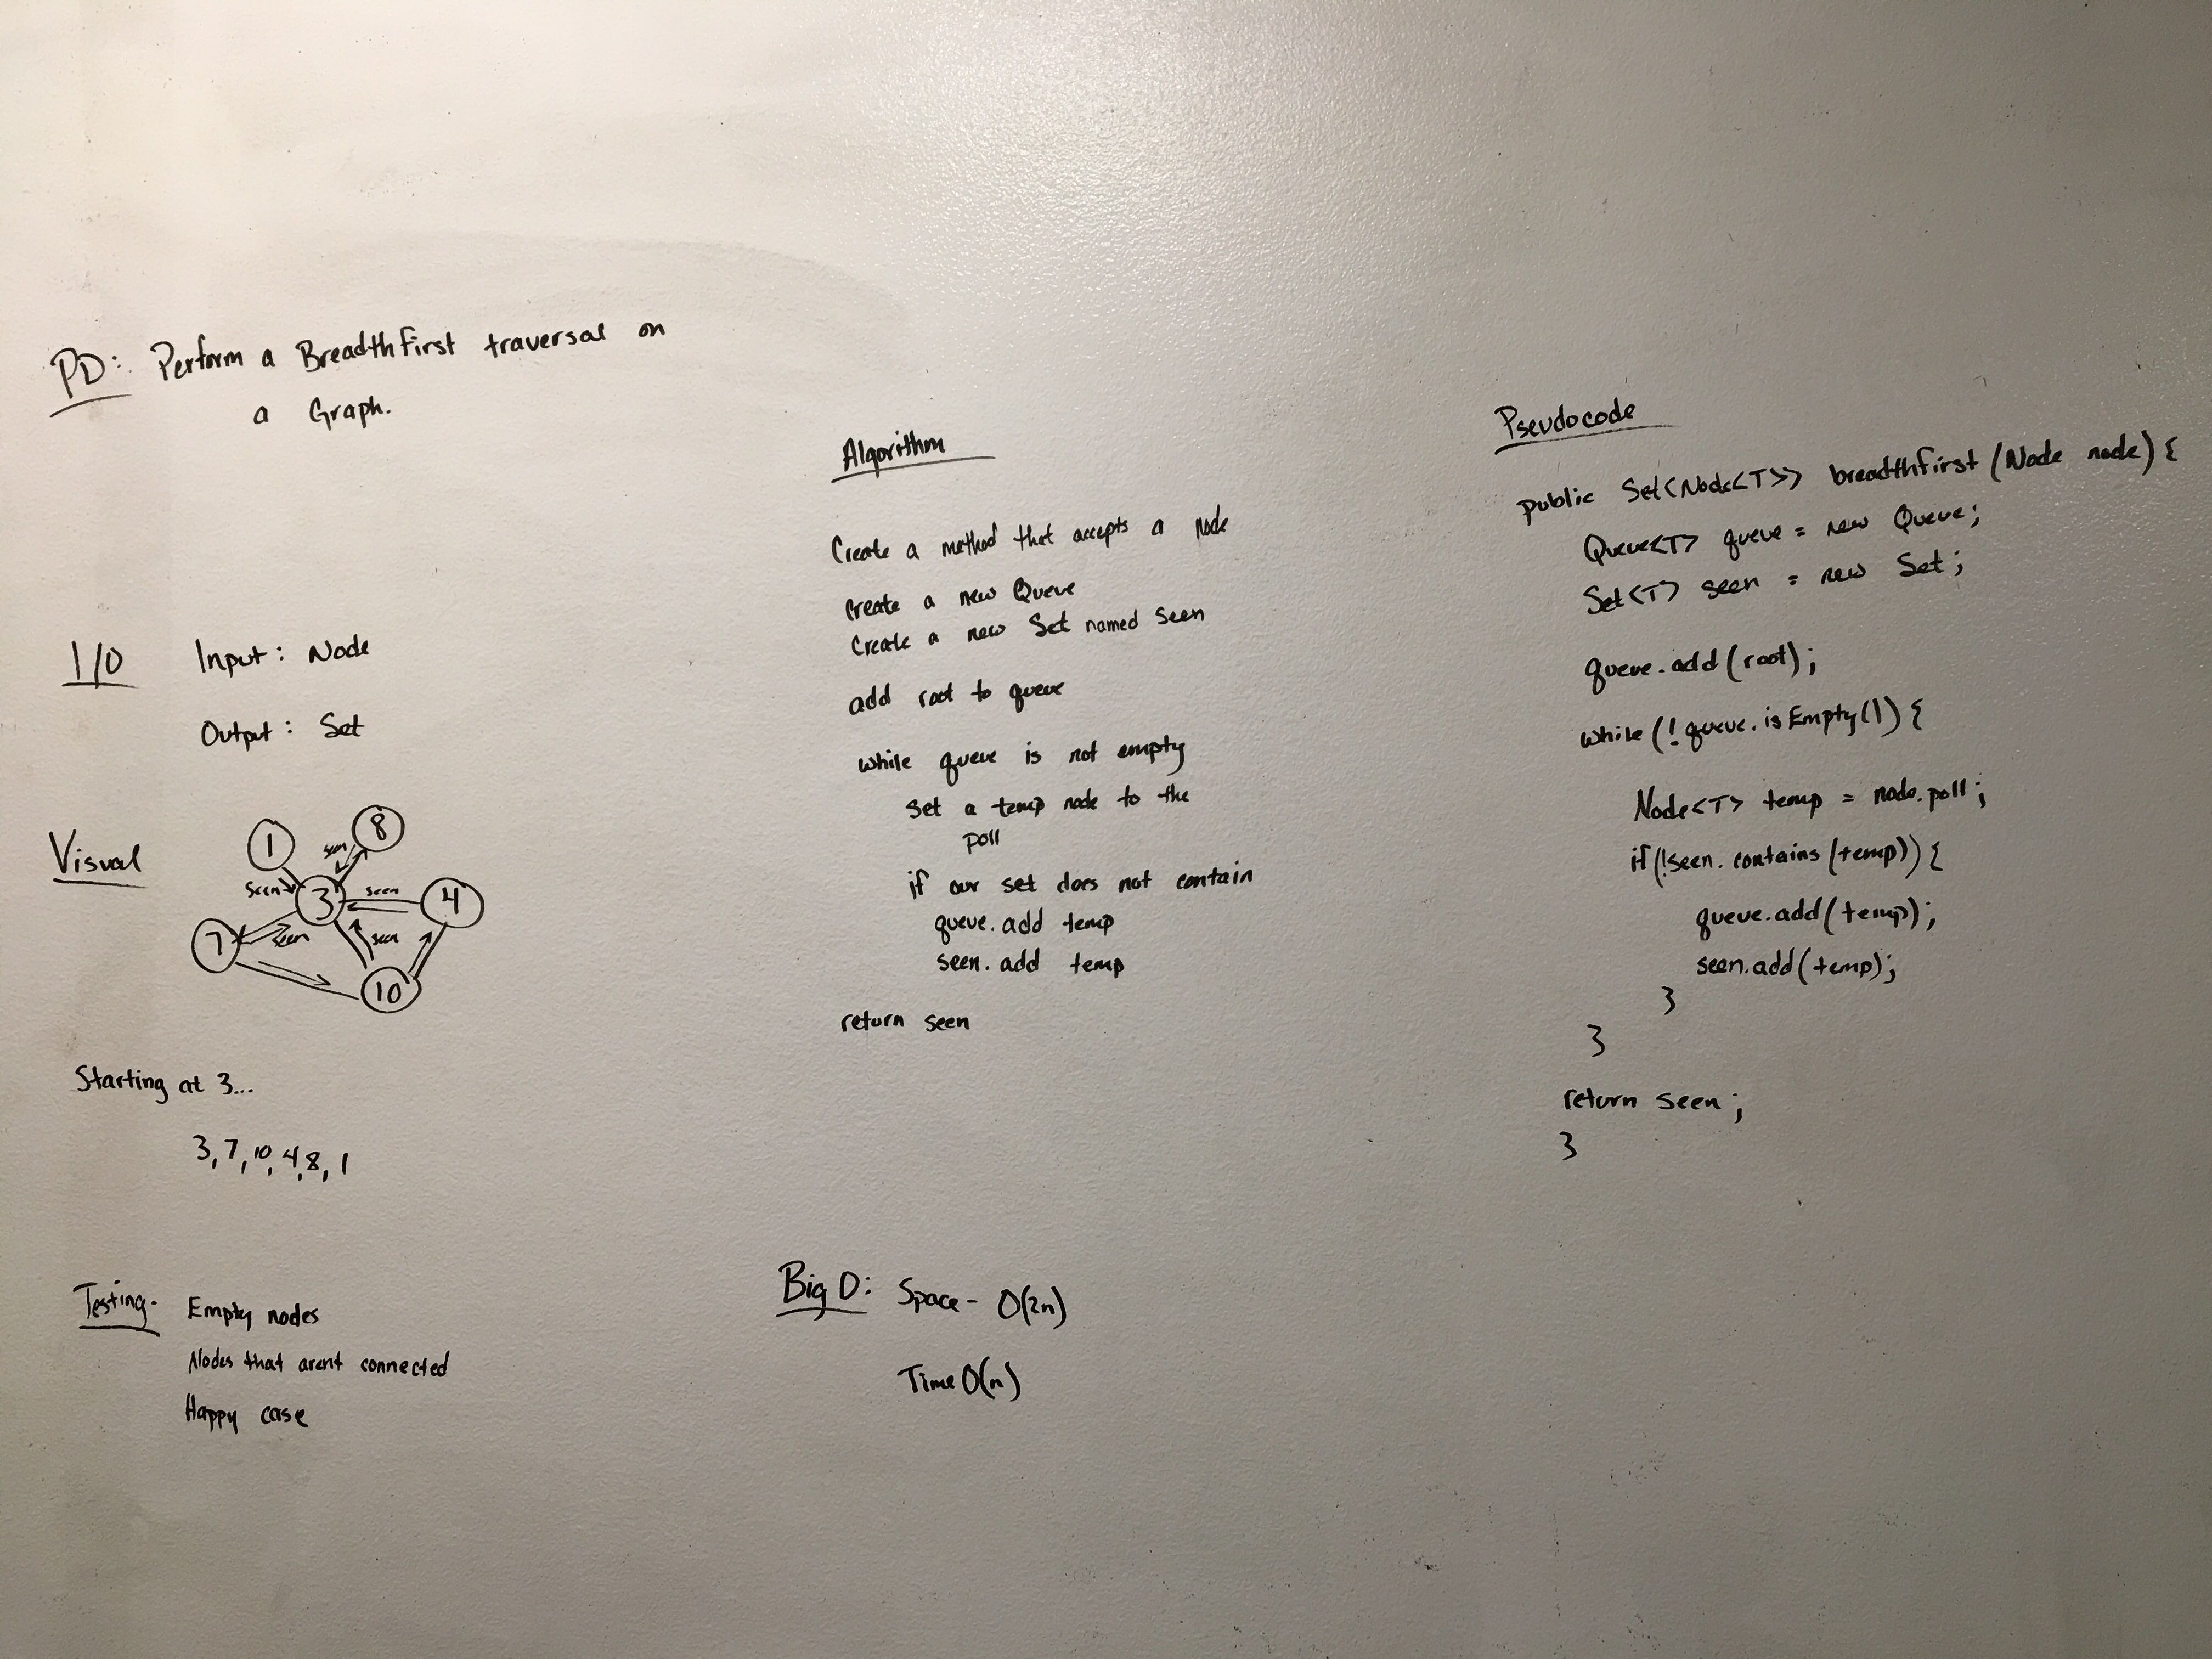 PD: Perform a Breadth First traversal on
a Graph.
I/O Input: Node
Output: Set
Visual
1
8
seen
seen
3
seen
4
7
seen
seen
10
Starting at 3...
3, 7, 10, 4, 8, 1
Testing- Empty nodes
Nodes that arent connected
Happy case
Algorithm
Create a method that accepts a node
Create a new Queue
Create a new Set named seen
add root to queue
while queue is not empty
set a temp node to the
poll
if our set does not contain
queue.add temp
seen.add temp
return seen
Big O: Space - O(2n)
Time O(n)
Pseudocode
public Set<Node<T>> breadthfirst (Node node) {
Queue<T> queue = new Queue;
Set<T> seen = new Set;
queue.add(root);
while (!queue.isEmpty()) {
Node<T> temp = node.poll;
if(!seen.contains(temp)) {
queue.add(temp);
seen.add(temp);
}
}
return seen;
}